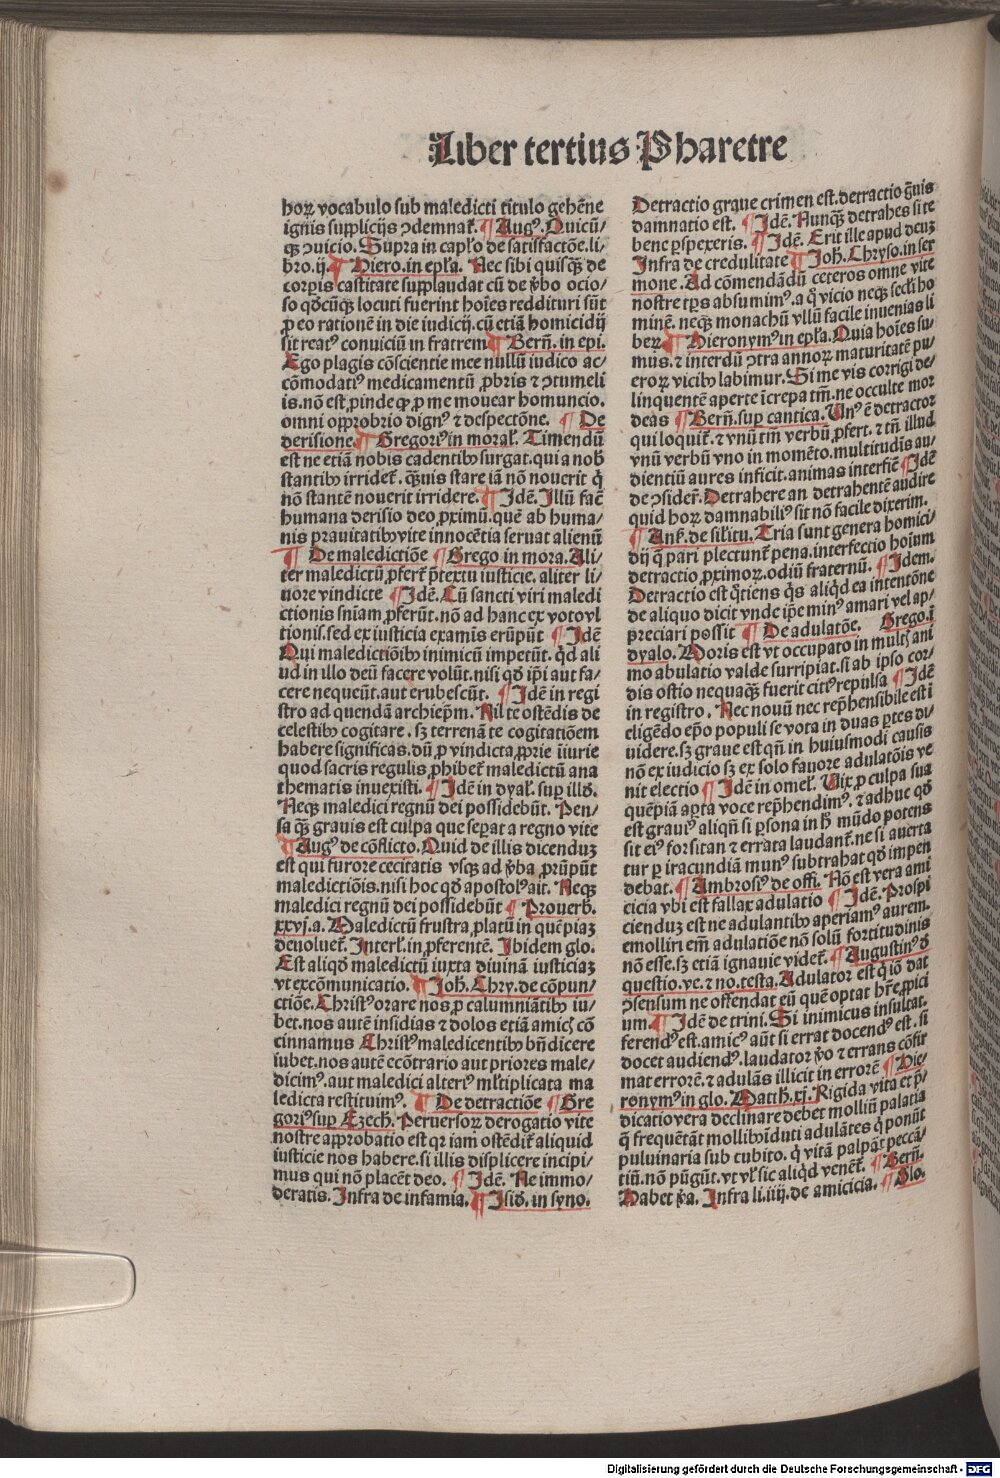 Liber tertius Pharetre
hoꝝ vocabulo sub maledicti titulo gehēne
ignis supplicijs ꝯdemnat᷑. ¶ Augꝰ. Quicū/
qꝫ ꝯuicio. Supra in caplo de satisfactōe. li/
bro. ij. ¶ Hiero. in epła. Nec sibi quisqꝫ de
corpis castitate supplaudat cū de ꝟbo ocio/
so qd̄cūqꝫ locuti fuerint hoīes reddituri sūt
ꝓ eo rationē in die iudicij. cū etiā homicidij
sit reatꝰ conuiciū in fratrem ¶ Bern̄. in epi.
Ego plagis cōscientie mee nullū iudico ac/
cōmodatiꝰ medicamentū ꝓbris ⁊ ꝯtumeli
is. nō est ꝓinde qꝫ ꝓ me mouear homuncio.
omni opprobrio dignꝰ ⁊ despectōne. ¶ De
derisione. ¶ Gregoriꝰ in moral᷑. Timendū
est ne etiā nobis cadentibꝰ surgat. qui a nob̄
stantibꝰ irridet᷑. qꝫuis stare iā nō nouerit q̇
nō stantē nouerit irridere. ¶ Idē. Illū facē
humana derisio deo ꝓximū. quē ab huma/
nis prauitatibꝰ vite innocētia seruat alienū
¶ De maledictiōe ¶ Grego in mora. Ali/
ter maledictū ꝓfert᷑ p̄textu iusticie. aliter li/
uore vindicte ¶ Idē. Cū sancti viri maledi
ctionis sn̄iam ꝓferūt. nō ad hanc ex voto vl
tionis. sed ex iusticia examīs erūpūt ¶ Idē
Qui maledictiōibꝰ inimicū impetūt. qd̄ ali
ud in illo deū facere volūt. nisi qd̄ ip̄i aut fa/
cere nequeūt. aut erubescūt. ¶ Idē in regi
stro ad quendā archiep̄m. Nil te ostēdis de
celestibꝰ cogitare. sꝫ terrenā te cogitatiōem
habere significas. dū ꝓ vindicta ꝓprie iniurie
quod sacris regulis ꝓhibet᷑ maledictū ana
thematis inuexisti. ¶ Idē in dyal᷑. sup illd̄.
Neqꝫ maledici regnū dei possidebūt. Pen/
sa qꝫ grauis est culpa que sepat a regno vite
¶ Augꝰ de cōflicto. Quid de illis dicenduꝫ
est qui furore cecitatis vsqꝫ ad ꝟba ꝓrūpūt
maledictiōis. nisi hoc qd̄ apostolꝰ ait. Neqꝫ
maledici regnū dei possidebūt ¶ Prouerb̄.
xxvj. a. Maledictū frustra ꝓlatū in quēpiaꝫ
deuoluet᷑. Interl᷑. in ꝓferentē. Ibidem glo.
Est aliqd̄ maledictū iuxta diuinā iusticiaꝫ
vt excōmunicatio. ¶ Joh̄. Chry. de cōpun/
ctiōe. Christꝰ orare nos ꝓ calumniātibꝰ iu/
bet. nos autē insidias ⁊ dolos etiā amicꝭ cō
cinnamus Christꝰ maledicentibꝰ bn̄dicere
iubet. nos autē eccōtrario aut priores male/
dicimꝰ. aut maledici alteriꝰ ml᷑tiplicata ma
ledicta restituimꝰ. ¶ De detractiōe ¶ Gre
goriꝰ sup Ezech̄. Peruersoꝝ derogatio vite
nostre approbatio est qꝛ iam ostēdit᷑ aliquid
iusticie nos habere. si illis displicere incipi/
mus qui nō placēt deo. ¶ Idē. Ne immo/
deratis. Infra de infamia. ¶ Isid̄. in syno.
Detractio graue crimen est. detractio g̃uis
damnatio est. ¶ Idē. Nunqꝫ detrahes si te
bene pspexeris. ¶ Idē. Erit ille apud deuꝫ
Infra de credulitate ¶ Joh̄. Chryso. in ser
mone. Ad cōmendādū ceteros omne vite
nostre tꝑs absumimꝰ. a q̇ vicio neqꝫ secl̄i ho
minē. neqꝫ monachū vllū facile inuenias li
beꝝ ¶ Hieronymꝰ in epła. Quia hoīes su/
mus. ⁊ interdū ꝯtra annoꝝ maturitatē pu/
eroꝝ vicibꝰ labimur. Si me vis corrigi de/
linquentē aperte īcrepa tm̄. ne occulte mor
deas ¶ Bern̄. sup cantica. Unꝰ ē detractor
qui loquit᷑. ⁊ vnū tm̄ verbū ꝓfert. ⁊ tn̄ illud
vnū verbū vno in momēto. multitudīs au/
dientiū aures inficit. animas interficē ¶ Idē
de ꝯsider᷑. Detrahere an detrahentē audire
quid hoꝝ damnabiliꝰ sit nō facile dixerim.
¶ Ans̄. de sil᷑itu. Tria sunt genera homici/
dij q̄ pari plectunt᷑ pena. interfectio hoīum
detractio ꝓximoꝝ. odiū fraternū. ¶ Idem.
Detractio est q̇tiens q̄s aliqd̄ ea intentōne
de aliquo dicit vnde ip̄e minꝰ amari vel ap/
preciari possit ¶ De adulatōe. Grego. ī
dyalo. Moris est vt occupato in multꝭ ani
mo abulatio valde surripiat. si ab ipso cor/
dis ostio nequaqꝫ fuerit citiꝰ repulsa ¶ Idē
in registro. Nec nouū nec rep̄hensibile est ī
eligēdo ep̄o populi se vota in duas ꝑtes di/
uidere. sꝫ graue est qn̄ in huiusmodi causis
nō ex iudicio sꝫ ex solo fauore adulatōis ve
nit electio ¶ Idē in omel᷑. Vix ꝓ culpa sua
quēpiā apta voce rep̄hendimꝰ. ⁊ adhuc qd̄
est grauiꝰ aliqn̄ si ꝑsona in h̄ mūdo potens
sit eiꝰ forsitan ⁊ errata laudant᷑. ne si auersa
tur ꝑ iracundiā munꝰ subtrahat qd̄ impen
debat. ¶ Ambrosiꝰ de offi. Nō est vera ami
cicia vbi est fallax adulatio ¶ Idē. Prospi
cienduꝫ est ne adulantibꝰ aperiamꝰ aurem.
emolliri em̄ adulatiōe nō solū fortitudinis
nō esse. sꝫ etiā ignauie videt᷑. ¶ Augustinꝰ d̄
questio. ve. ⁊ no. testa. Adulator est q̇iō dat
ꝯsensum ne offendat eū quē optat hr̄e ꝓpici
um. ¶ Idē de trini. Si inimicus insultat.
ferendꝰ est. amicꝰ aūt si errat docendꝰ est. si
docet audiendꝰ. laudator ꝟo ⁊ errans cōfir
mat errorē. ⁊ adulās illicit in errorē ¶ Hie/
ronymꝰ in glo. Matth̄. xj. Rigida vita et p̄/
dicatio vera declinare debet molliū palatia
q̄ frequētāt mollibꝰ induti adulātes q̇ ponūt
puluinaria sub cubito. q̇ vitā palpāt peccā/
tiū. nō pūgūt. vt vl᷑ sic aliqd̄ venēt᷑. ¶ Bern̄.
Habet ꝟa. Infra li. iiij. de amicicia. ¶ Glo.
Digitalisierung gefördert durch die Deutsche Forschungsgemeinschaft - DFG